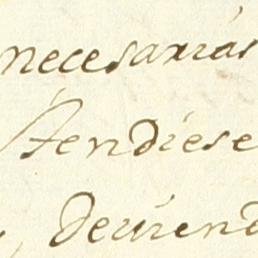 necesarias
Atendiese
, deviend